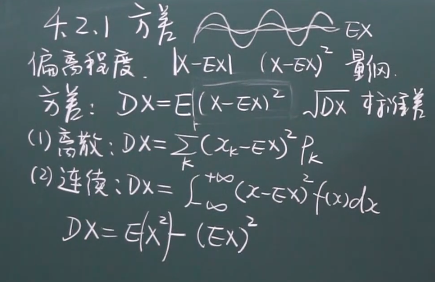 4.2.1 方差 EX
偏离程度. |X-EX| (X-EX)² 量纲.
方差: DX=E(X-EX)² √DX 标准差
(1) 离散: DX=∑ₖ(xₖ-EX)²Pₖ
(2) 连续: DX=∫₋∞⁺∞(x-EX)²f(x)dx
DX=E(X²)-(EX)²